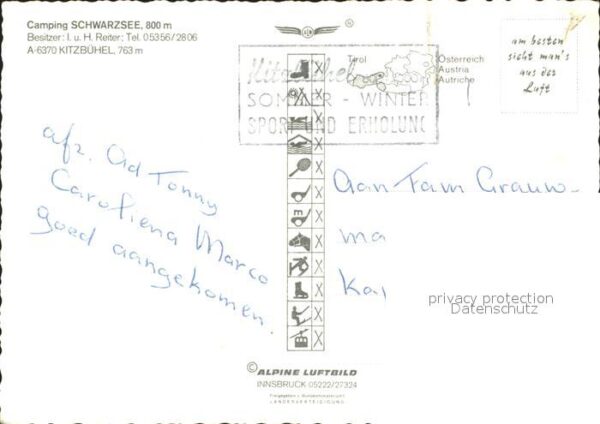 Camping SCHWARZSEE, 800 m
Besitzer: I. u. H. Reiter; Tel. 05356/2806
A-6370 KITZBÜHEL, 763 m
Tirol
Österreich
Austria
Autriche
am besten
sieht man's
aus der
Luft
Kitzbühel
SOMMER - WINTER
SPORT UND ERHOLUNG
afz. Ad Tonny
Caroliena Marco
goed aangekomen.
Aan Fam Grauw-
ma
Kar
privacy protection
Datenschutz
© ALPINE LUFTBILD
INNSBRUCK 05222/27324
Freigegeben v. Bundesministerium f.
LANDESVERTEIDIGUNG